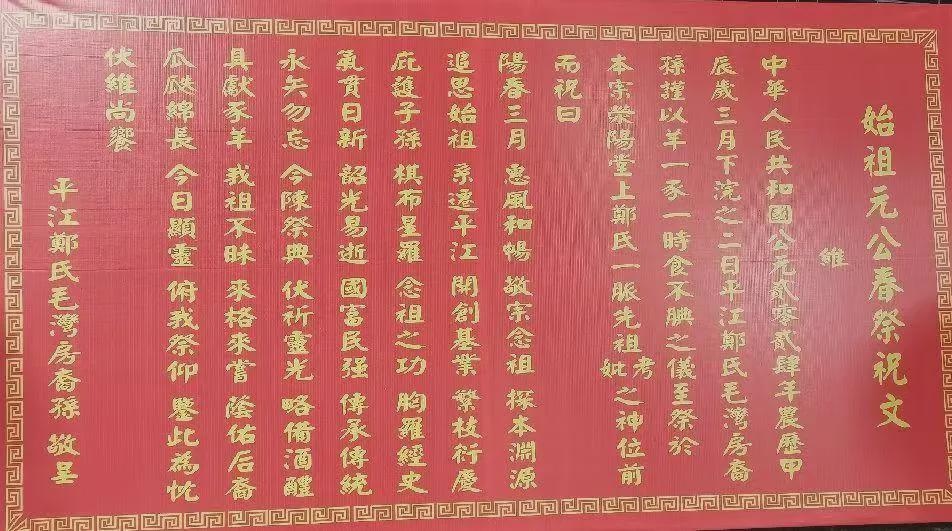 始祖元公春祭祝文
維
中華人民共和國公元貳零貳肆年農歷甲
辰歲三月下浣之二日平江鄭氏毛灣房裔
孫謹以羊一豕一時食不腆之儀至祭於
本宗榮陽堂上鄭氏一脈先祖考妣之神位前
而祝曰
陽春三月 惠風和暢 敬宗念祖 探本淵源
追思始祖 系遷平江 開創基業 繁枝衍慶
庇護子孫 棋布星羅 念祖之功 胸羅經史
氣貫日新 韶光易逝 國富民强 傳承傳統
永矢勿忘 今陳祭典 伏祈靈光 略備酒醴
具獻豕羊 我祖不昧 來格來嘗 蔭佑后裔
瓜瓞綿長 今日顯靈 俯我祭仰 鑒此為忱
伏維尚饗
平江鄭氏毛灣房裔孫 敬呈